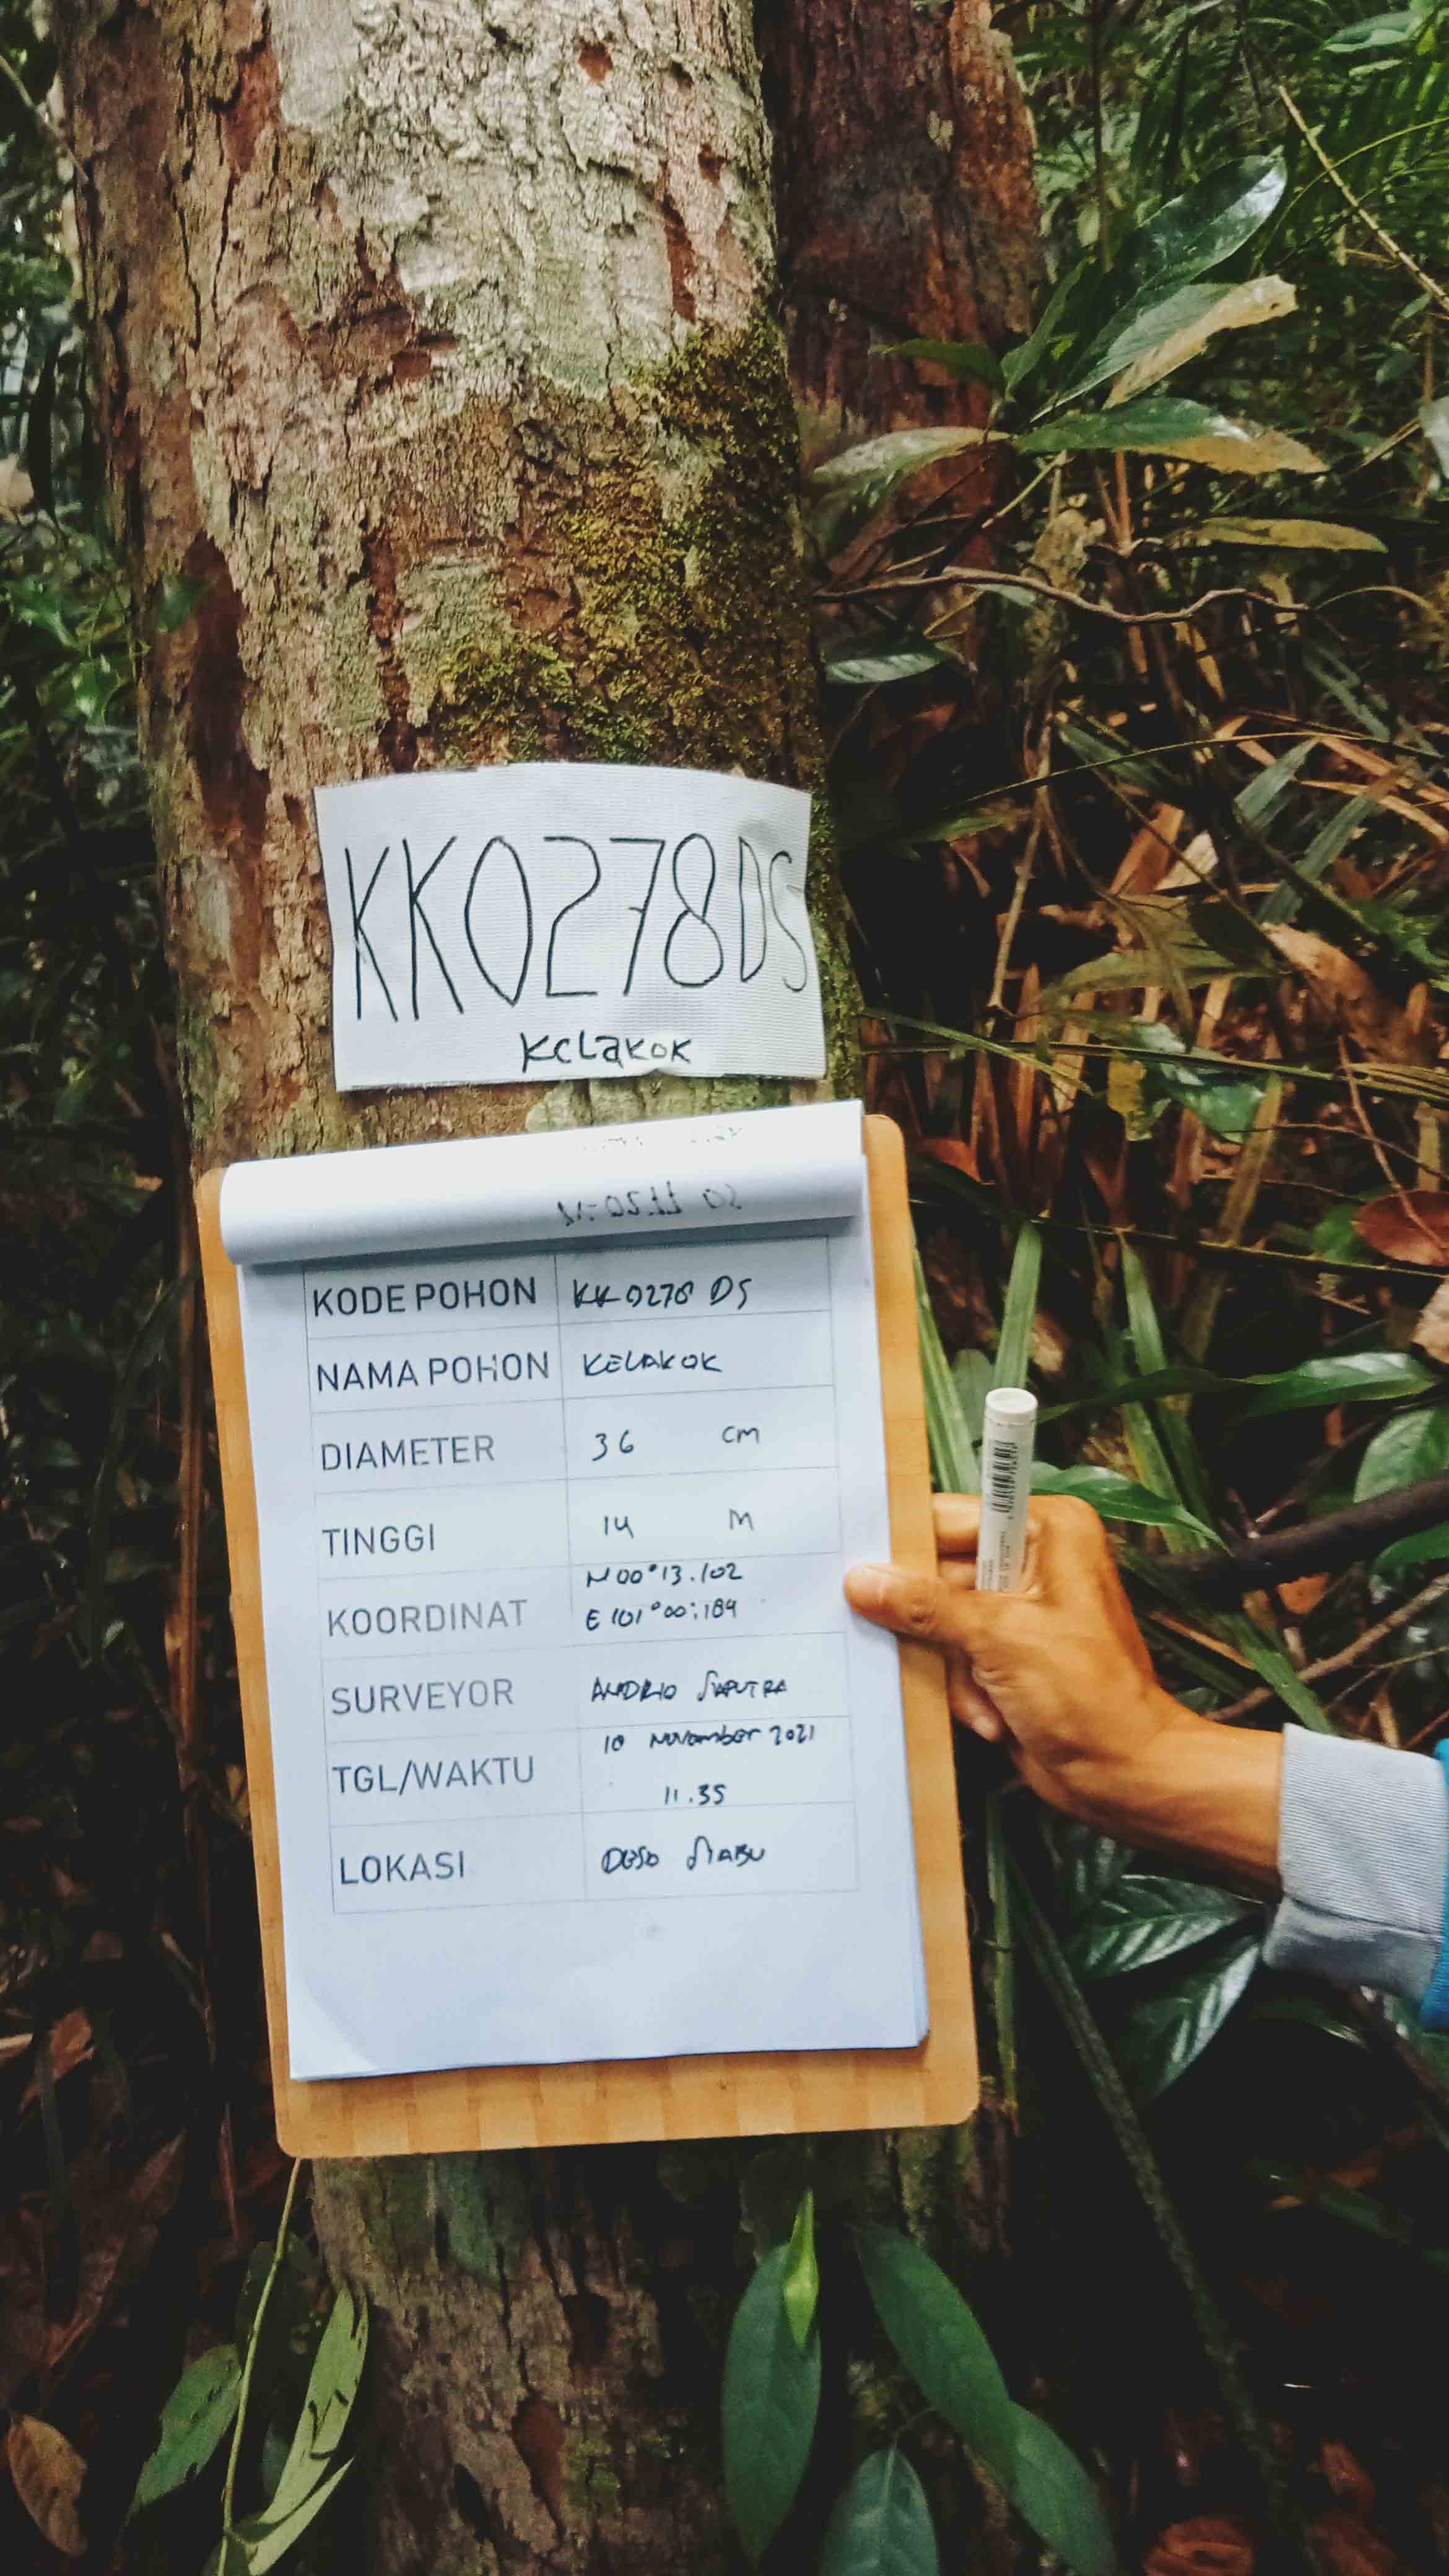 KK0278DS
Kelakok
KODE POHON KK0278 DS
NAMA POHON KELAKOK
DIAMETER 36 CM
TINGGI 14 M
KOORDINAT N 00°13.102
E 101°00:184
SURVEYOR ANDRIO SAPUTRA
TGL/WAKTU 10 November 2021
11.35
LOKASI SIABU